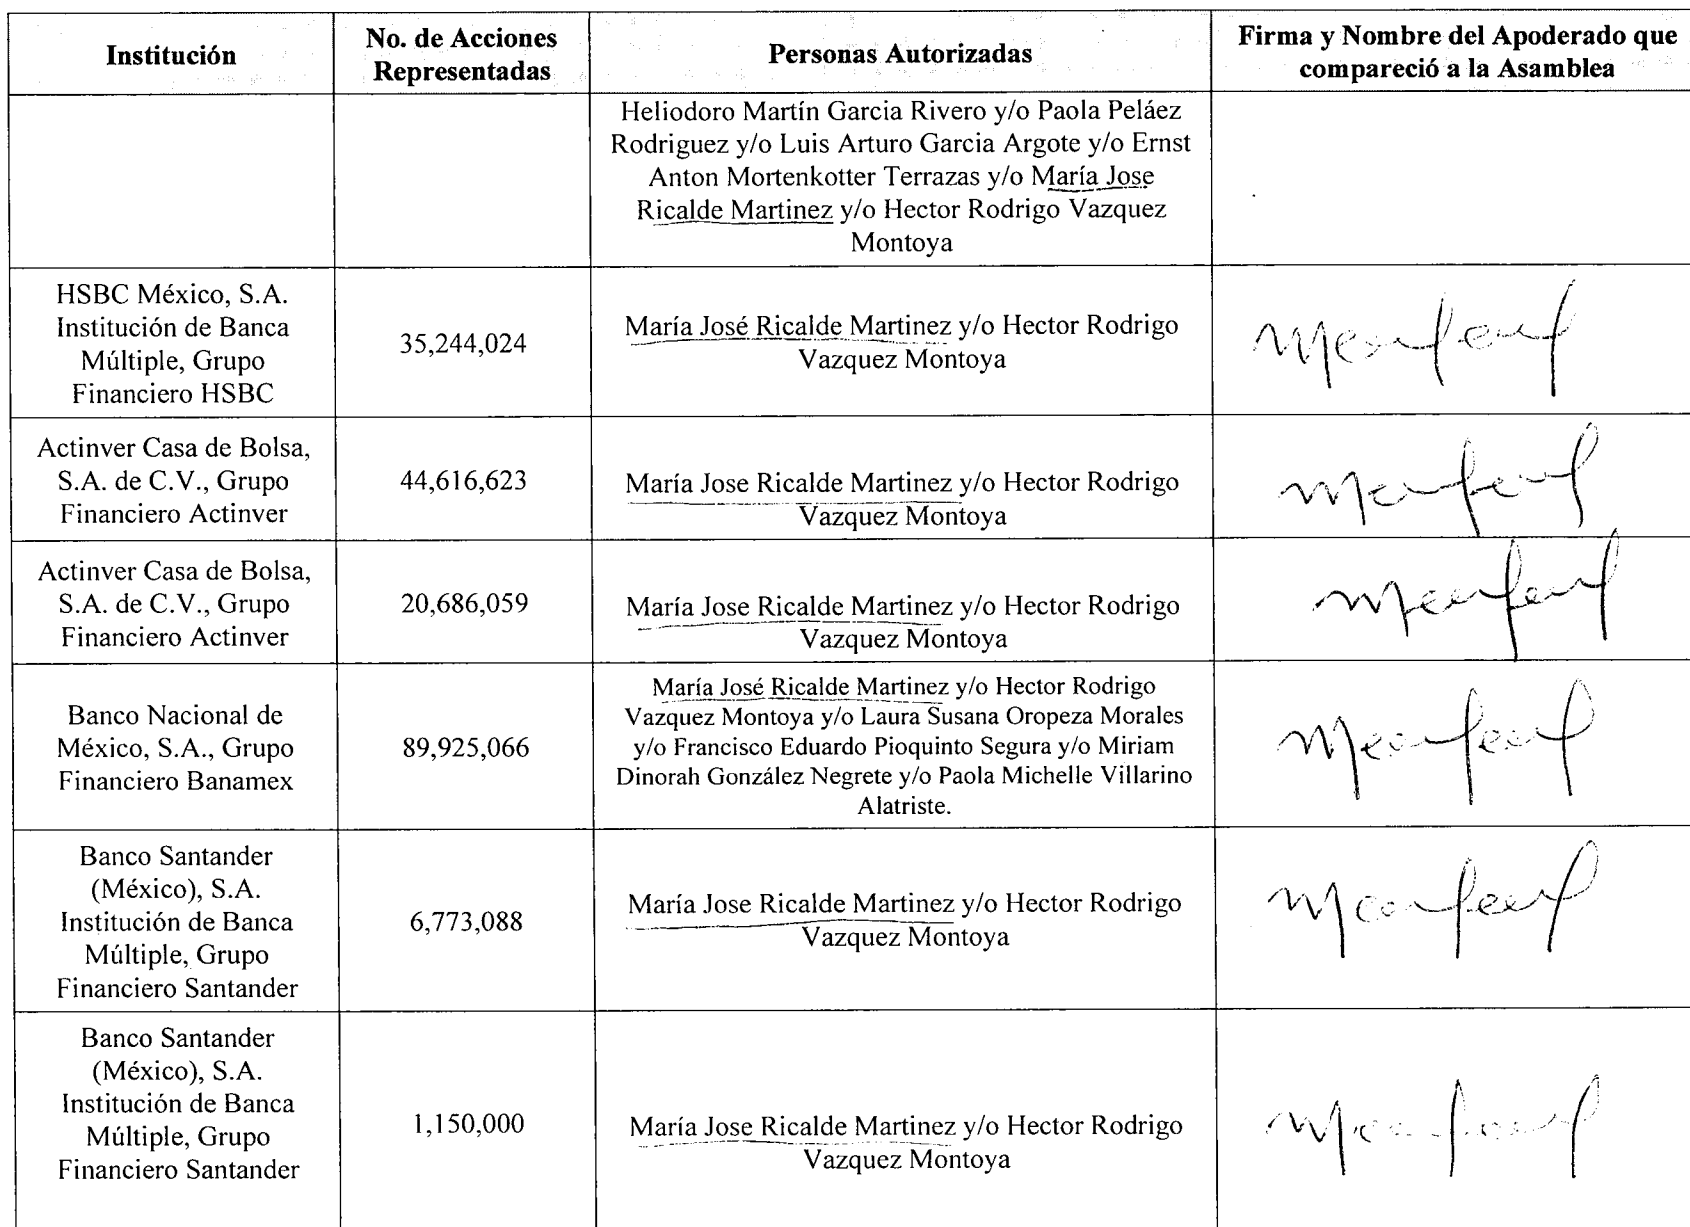 Institución
No. de Acciones
Representadas
Personas Autorizadas
Firma y Nombre del Apoderado que
compareció a la Asamblea
Heliodoro Martín Garcia Rivero y/o Paola Peláez
Rodriguez y/o Luis Arturo Garcia Argote y/o Ernst
Anton Mortenkotter Terrazas y/o María Jose
Ricalde Martinez y/o Hector Rodrigo Vazquez
Montoya
HSBC México, S.A.
Institución de Banca
Múltiple, Grupo
Financiero HSBC
35,244,024
María José Ricalde Martinez y/o Hector Rodrigo
Vazquez Montoya
Actinver Casa de Bolsa,
S.A. de C.V., Grupo
Financiero Actinver
44,616,623
María Jose Ricalde Martinez y/o Hector Rodrigo
Vazquez Montoya
Actinver Casa de Bolsa,
S.A. de C.V., Grupo
Financiero Actinver
20,686,059
María Jose Ricalde Martinez y/o Hector Rodrigo
Vazquez Montoya
Banco Nacional de
México, S.A., Grupo
Financiero Banamex
89,925,066
María José Ricalde Martinez y/o Hector Rodrigo
Vazquez Montoya y/o Laura Susana Oropeza Morales
y/o Francisco Eduardo Pioquinto Segura y/o Miriam
Dinorah González Negrete y/o Paola Michelle Villarino
Alatriste.
Banco Santander
(México), S.A.
Institución de Banca
Múltiple, Grupo
Financiero Santander
6,773,088
María Jose Ricalde Martinez y/o Hector Rodrigo
Vazquez Montoya
Banco Santander
(México), S.A.
Institución de Banca
Múltiple, Grupo
Financiero Santander
1,150,000
María Jose Ricalde Martinez y/o Hector Rodrigo
Vazquez Montoya